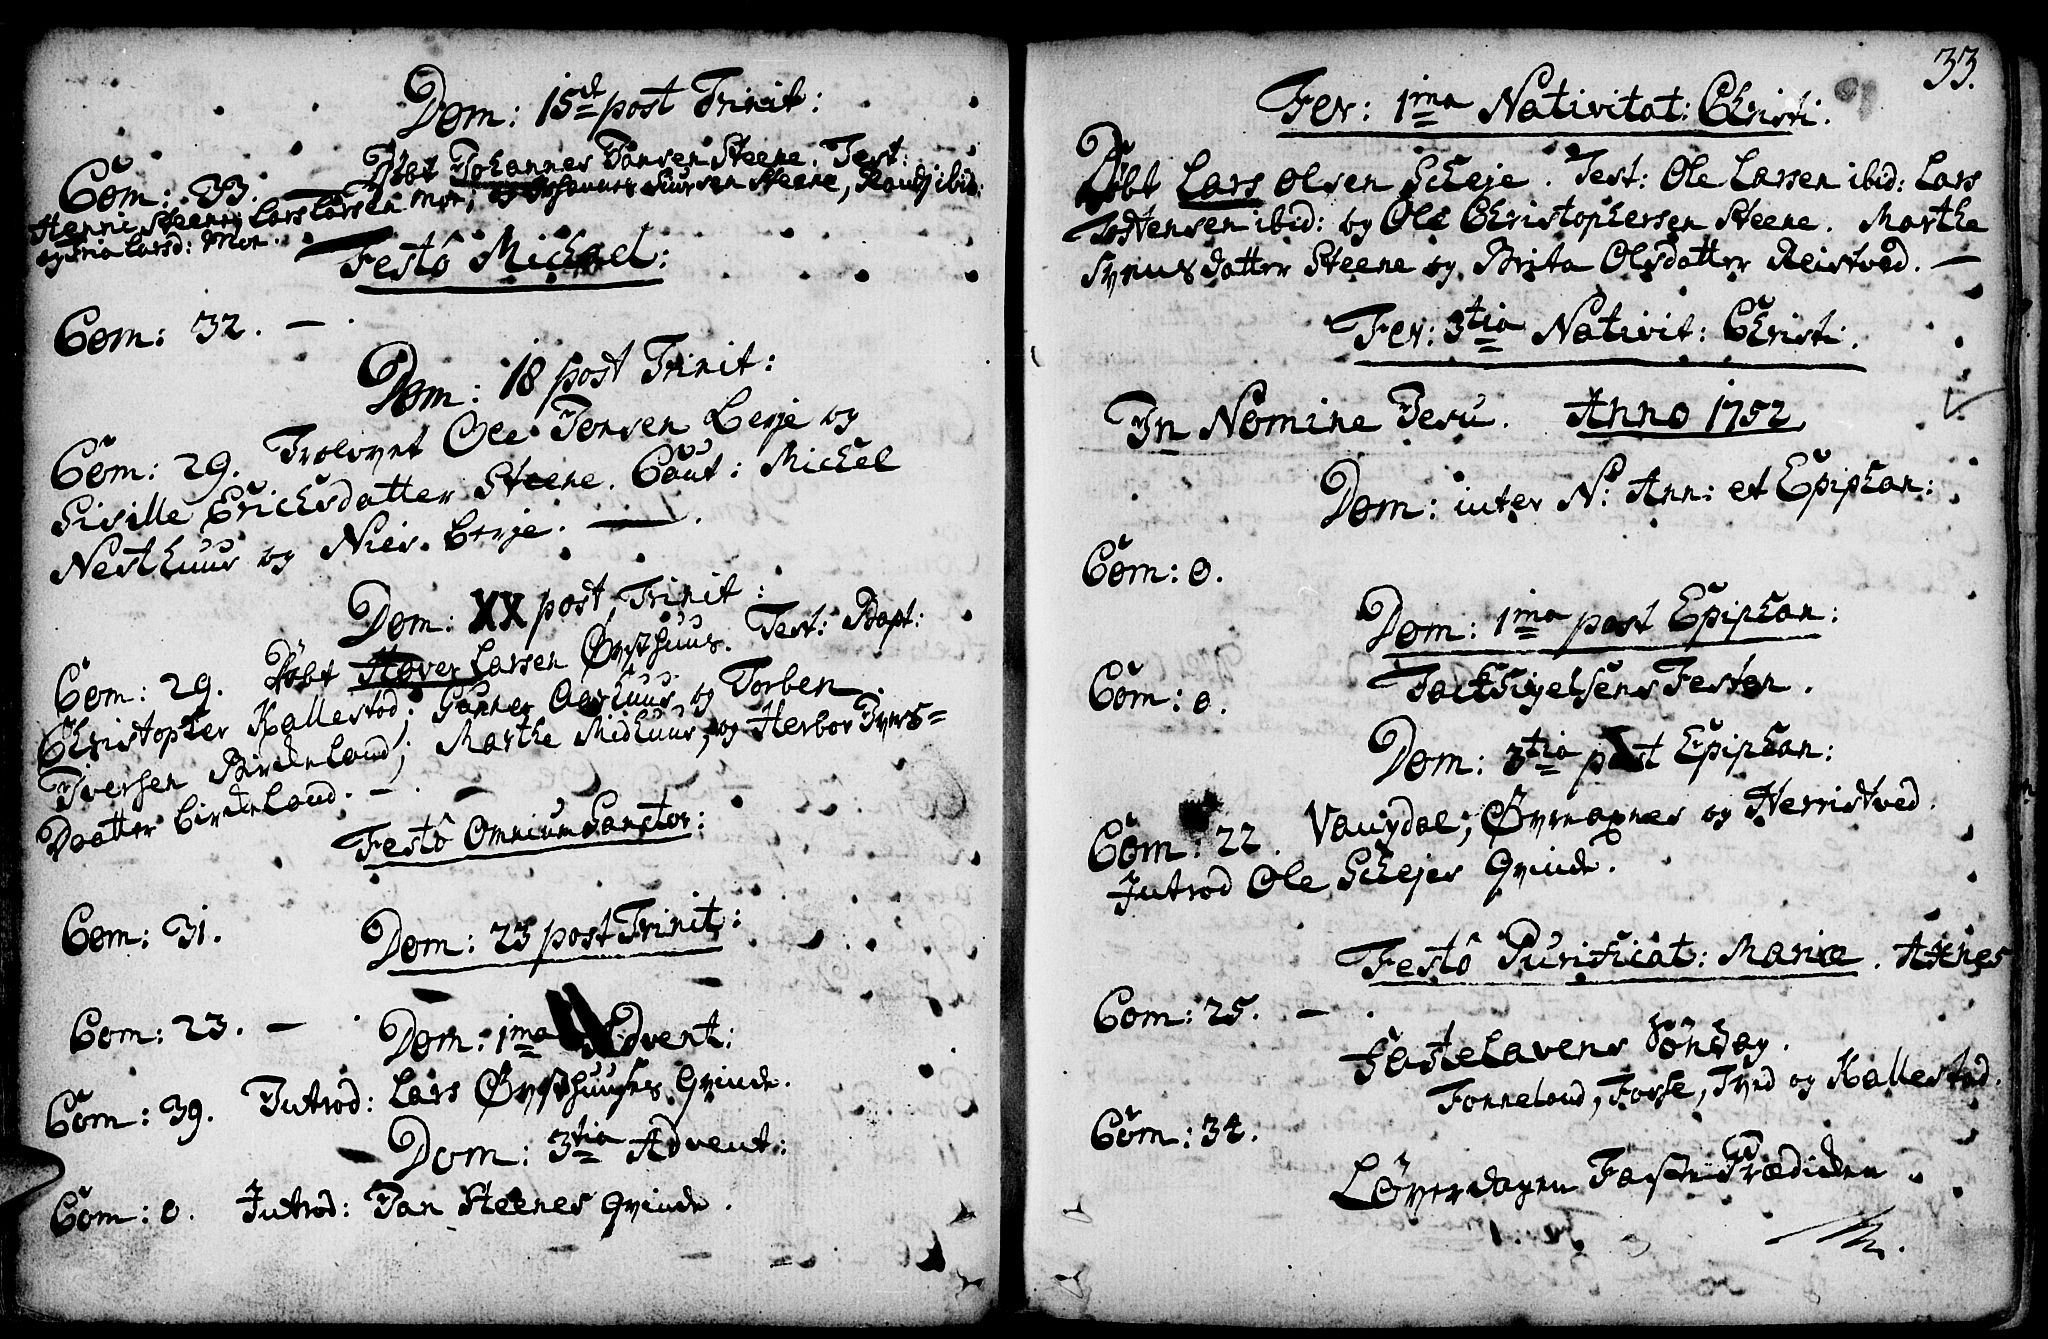 Dom: 15de post Trinit:
Com: 33. Døbt Johannes Jansen Steene. Test:
Henni Steene, Lars Larsen Moe, og Johannes Siursen Steene, Randj ibid:
og Larsd: Moe.
Festô Michael:
Com: 32. —
Dom: 18 post Trinit:
Com: 29. Trolovet Ole Jonsen Berje og
Siville Erichsdatter Steene. Caut: Michel
Nesthuus og Niels Berje. —
Dom: XX post Trinit:
Com: 29. Døbt Haver Larsen Øvsthuus. Test: Bapt:
Christopher Kallestad; Gunner Aashuus og Torben
Iversen Birkeland; Marthe Midhuus, og Herbor Ivers=
Daatter Birkeland. —
Festô Omnium Sanctor:
Com: 31.
Dom: 23 post Trinit:
Com: 23. —
Dom: 1ma Advent:
Com: 39. Introd: Lars Øvsthuuses Qvinde.
Dom: 3tia Advent:
Com: 0. Introd: Jan Steenes Qvinde.
33.
Fer: 1ma Nativitat: Christi:
Døbt Lars Olsen Scheje. Test: Ole Larsen ibid: Lars
Tostensen ibid: og Ole Christophersen Steene. Marthe
Synnes datter Steene og Brita Olsdatter Reistved. —
Fer: 3tia Nativit: Christi.
In Nomine Jesu. Anno 1752.
Dom: inter N: Ann: et Epiphan:
Com: 0.
Dom: 1ma post Epiphan:
Com: 0. Tacksigelsens Festen.
Dom: 3tia post Epiphan:
Com: 22. Vangdal; Øvernaxnes og Herristved.
Introd Ole Schejes Qvinde.
Festô Purificat: Mariæ. Axnes
Com: 25. —
Fastelavens Søndag.
Tonneland, Fosse, Tved og Kallestad.
Com: 34.
Løverdagen Faste Prædicken